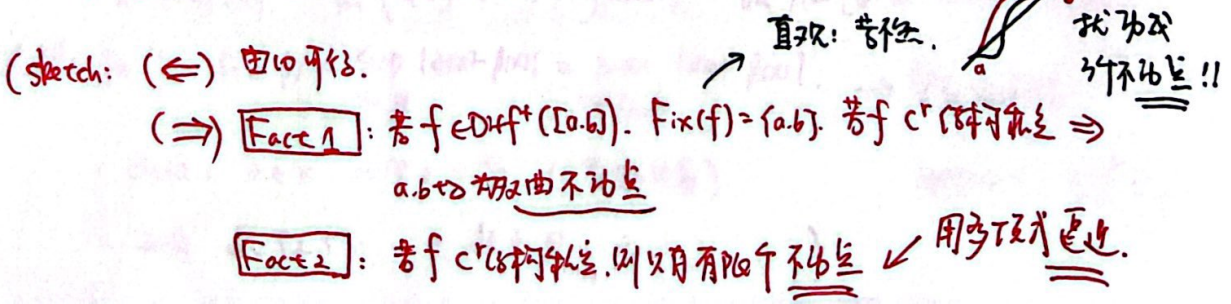 直观: 若不然. 扰动成
a 3个不动点!!
(sketch: (⇐) 由(1)可得.
(⇒) Fact 1: 若 f ∈ Diff⁺([a,b]). Fix(f)={a,b}. 若 f Cʳ 结构稳定 ⇒
a,b 均为双曲不动点
Fact 2: 若 f Cʳ 结构稳定,则只有有限个不动点 ↙ 用多项式逼近.